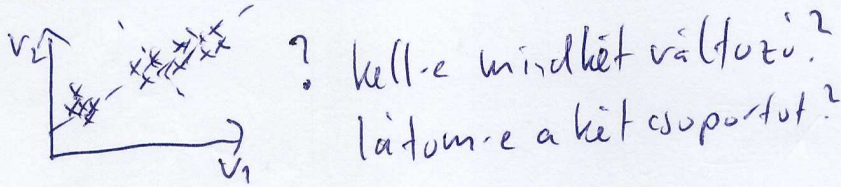 V2
? kell-e mindkét változó?
látom-e a két csoportot?
V1